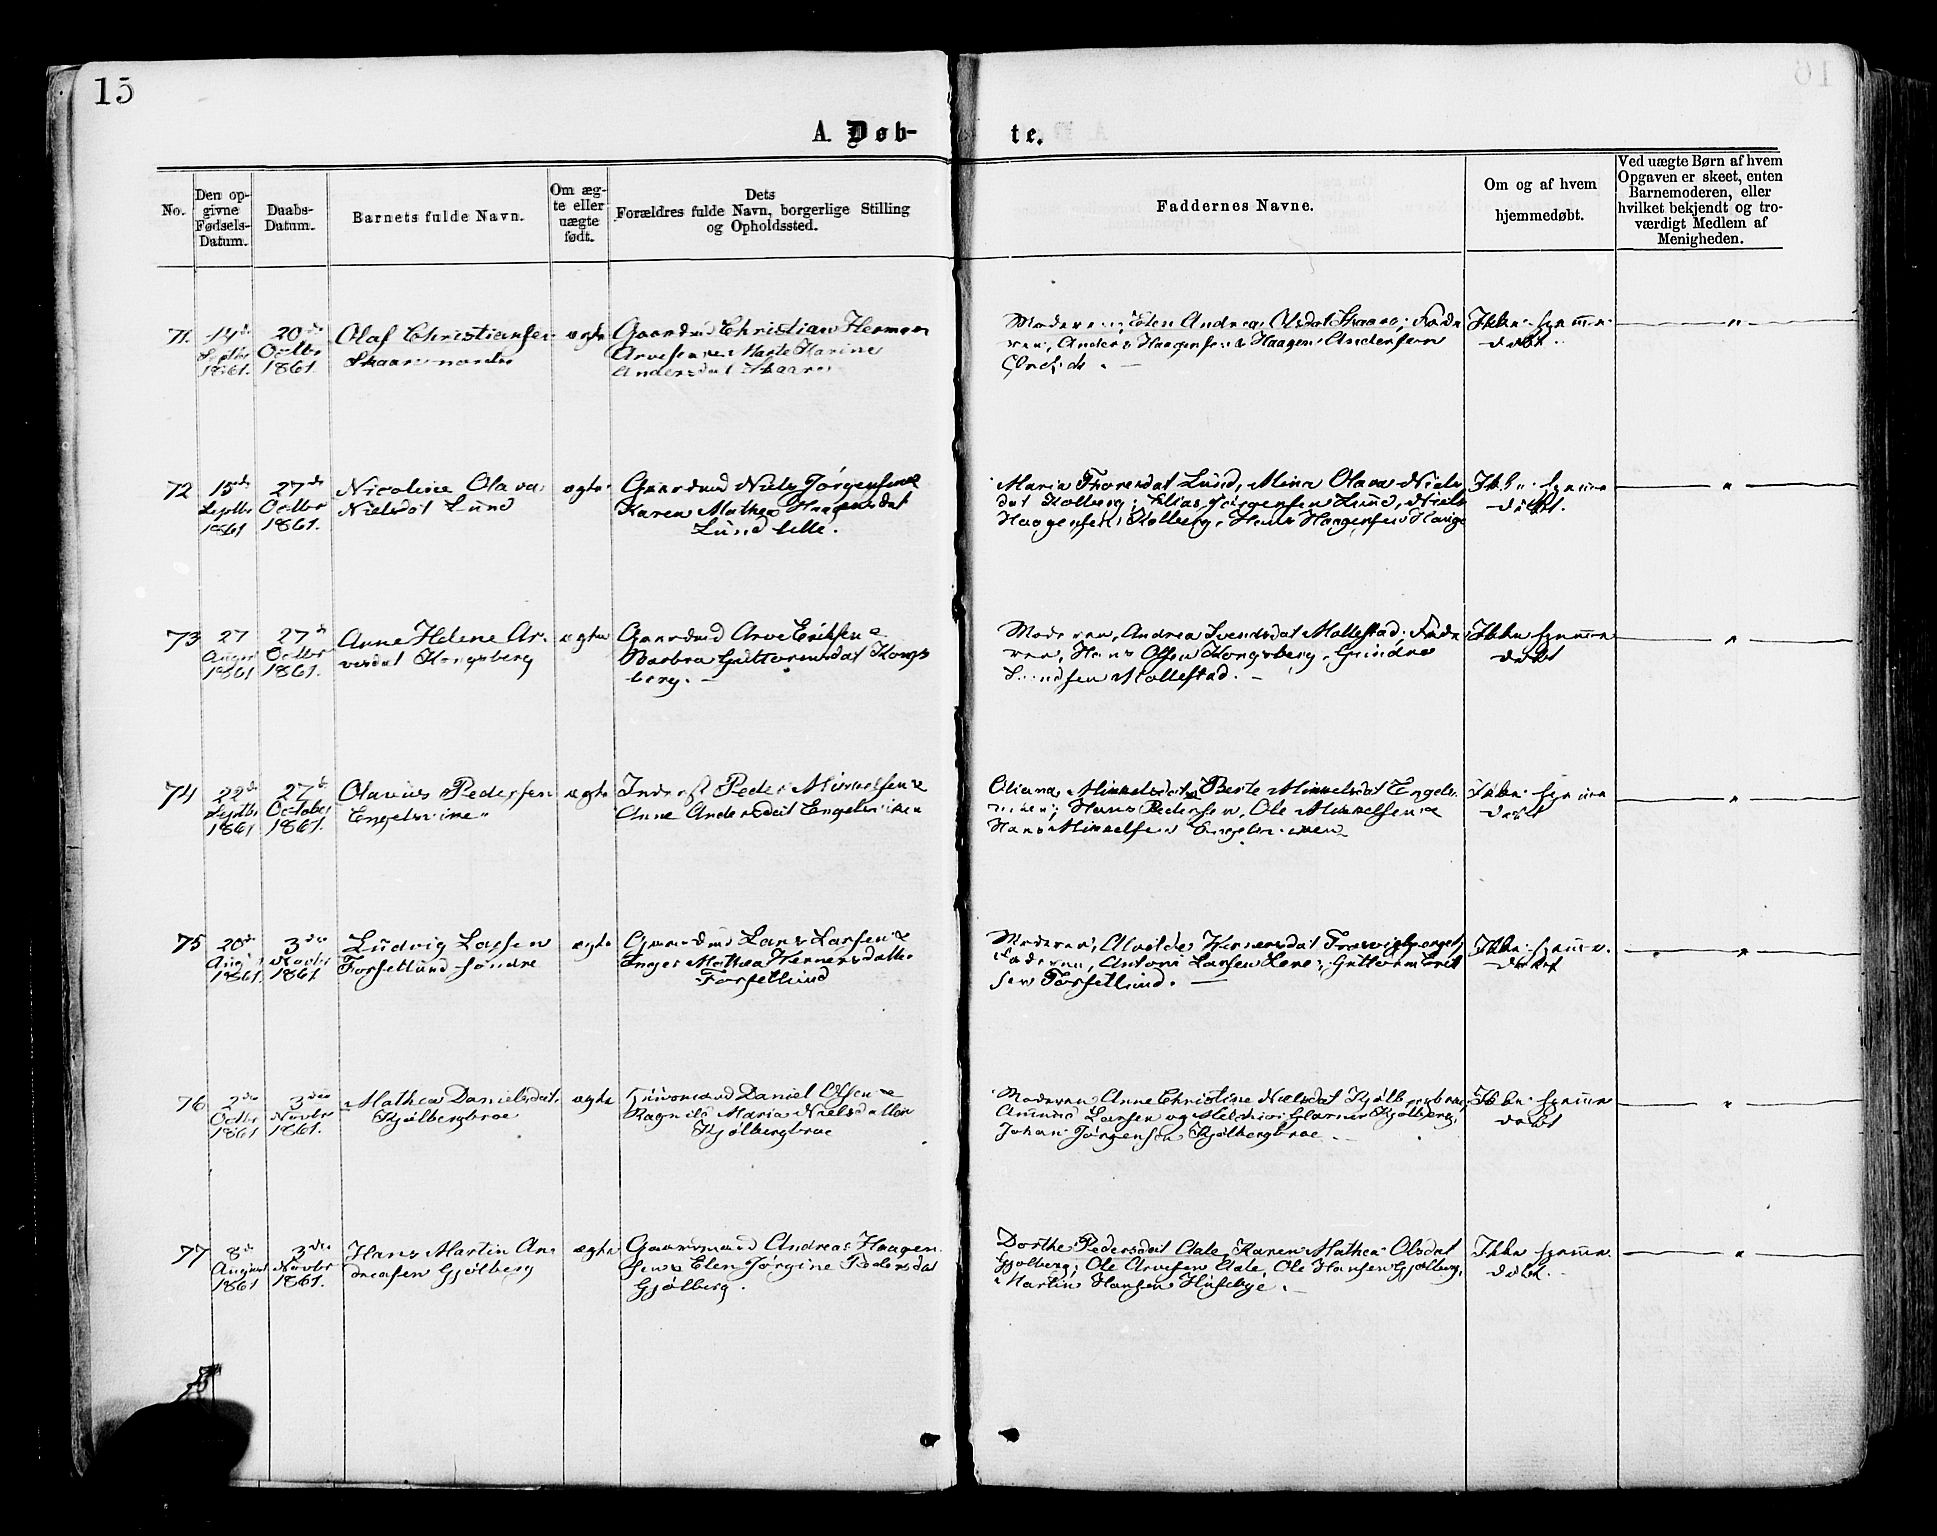 15
A. Døb- te.
No.
Den op-
givne
Fødsels-
Datum.
Daabs-
Datum.
Barnets fulde Navn.
Om æg-
te eller
uægte
født.
Dets
Forældres fulde Navn, borgerlige Stilling
og Opholdssted.
Faddernes Navne.
Om og af hvem
hjemmedøbt.
Ved uægte Børn af hvem
Opgaven er skeet, enten
Barnemoderen, eller
hvilket bekjendt og tro-
værdigt Medlem af
Menigheden.
71.
14de
Septbr
1861.
20de
Octbr
1861.
Olaf Christiansen
Skaare nordre
ægte
Gaardmd Christian Herman
Arvesen & Marte Karine
Andersdat Skaare
Moderen, Elen Andrea Olsdat Skaare; Fade
ren, Anders Haagensen & Haagen Andersen
Ikke hjemme
døbt.
72
15de
Septbr
1861
27de
Octbr
1861.
Nicoline Olava
Nielsdat Lund
ægte
Gaardmd Niels Jørgensen &
Karen Mathea Haagensdat
Lund lille.
Maria Thoresdat Lund, Mina Olava Niels
dat Kolberg; Elias Jørgensen Lund, Niels
Haagensen Kolberg, Hans Haagensen Hauge
Ikke hjemme
døbt.
73
27
August
1861
27de
Octbr
1861.
Anne Helene Ar-
vesdat Kongsberg
ægte
Gaardmd Arve Eriksen &
Barbra Guttormsdat Kongs
berg.
Moderen, Andrea Svendsdat Mollestad; Fade
ren, Hans Olsen Kongsberg, Gudm
Mollestad.
Ikke hjemme
døbt
74
22de
Septbr
1861
27de
October
1861.
Olavus Pedersen
ægte
Inderst Peder Mikkelsen &
Anne Andersdat
Oliana Mikkelsdat, Berte Mikkelsdat
Hans Pedersen, Ole Mikkelsen &
Hans Mikkelsen
Ikke hjemme
døbt
75
20de
August
1861.
3die
Novbr
1861
Ludvig Larsen
Forsetlund søndre
ægte
Gaardmd Lars Larsen &
Inger Mathea Hemersdatter
Forsetlund
Moderen, Alvilde Hemersdat
Faderen, Antoni Larsen Lere, Guttorm Erik
sen Forsetlund.
Ikke hjemme
døbt
76
2den
Octbr
1861
3die
Novbr
1861.
Mathea Danielsdat
Kjølbergbrae
ægte
Huusmand Daniel Olsen &
Ragnild Maria Nielsdatter
Kjølbergbrae
Moderen, Anne Christine Nielsdat Kjølbergbrae,
Amund Larsen og Melchior Kjølberg,
Johan Jørgensen Kjølbergbrae.
Ikke hjemme
døbt
77
8de
August
1861
3die
Novbr
1861.
Hans Martin An-
dreasen Gjølberg
ægte
Gaardmand Andreas Haagen
sen & Elen Jørgine Pedersdat
Gjølberg.
Dorthe Pedersdat Aale, Karen Mathea Olsdat
Gjølberg; Ole Arvesen Aale, Ole Hansen Gjølberg,
Martin Hansen Husebye.
Ikke hjemme
døbt.